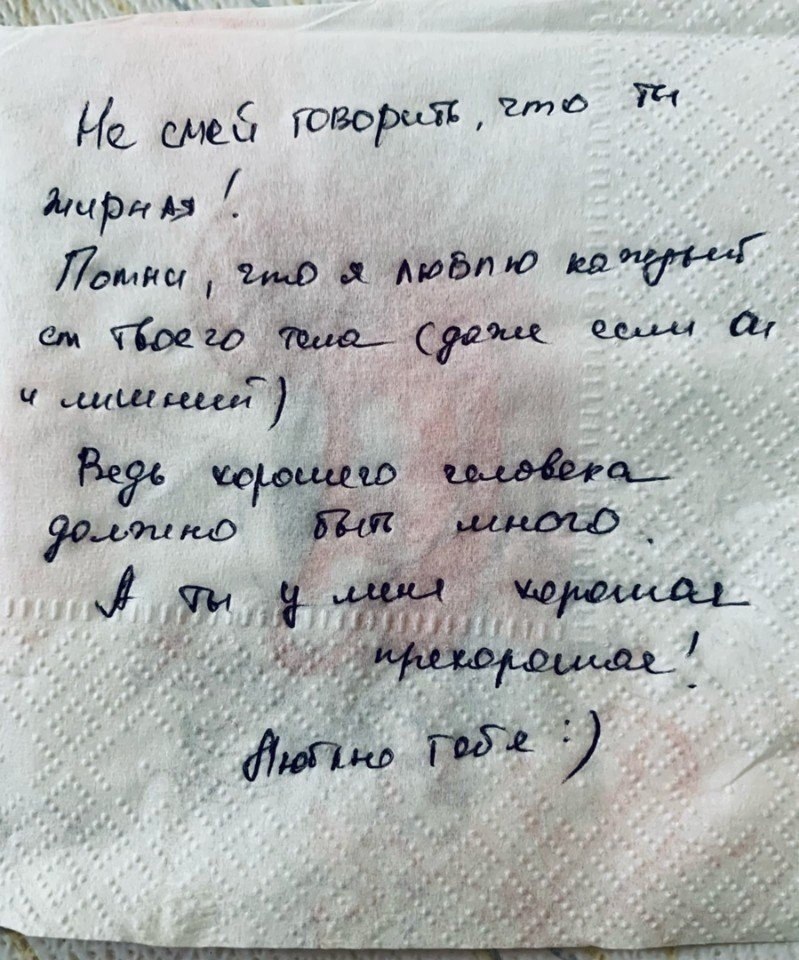 Не смей говорить, что ты
жирная!
Помни, что я люблю каждый
см твоего тела (даже если он
и лишний)
Ведь хорошего человека
должно быть много.
А ты у меня хорошая
прехорошая!
Люблю тебя :)